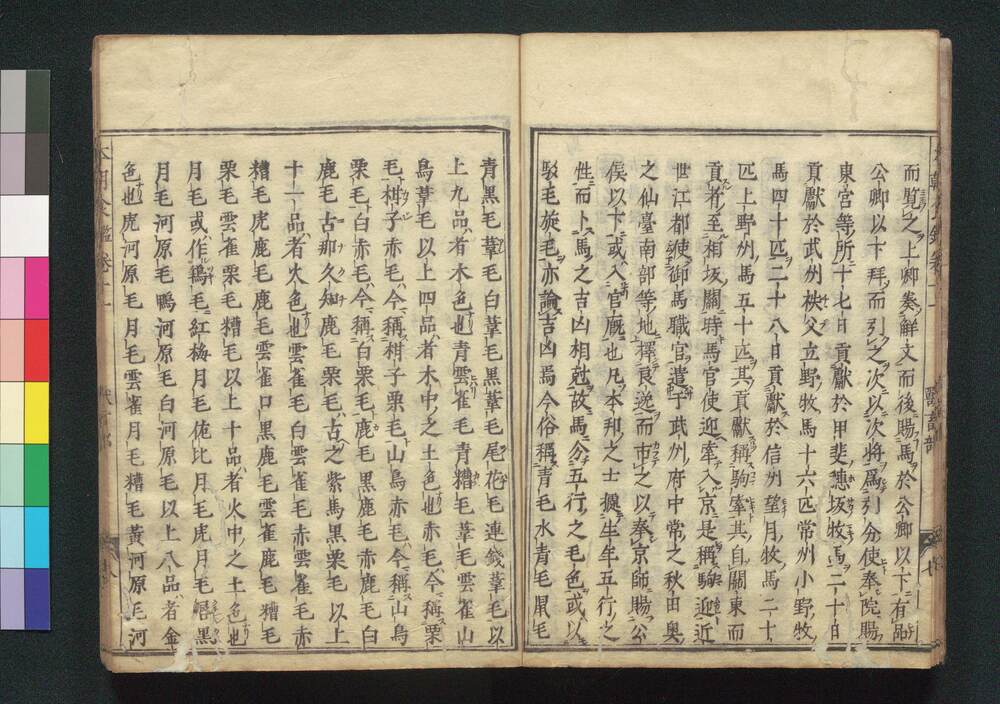 而覧之上卿奏解文而後賜馬於公卿以下有品
公卿以下拜而引之次以次將爲引分使奉院賜
東宮等所十七日貢獻於甲斐穗坂牧馬二十日
貢獻於武州秩父立野牧馬十六匹常州小野牧
馬四十匹二十八日貢獻於信州望月牧馬二十
匹上野州馬五十匹其貢獻稱駒牽其自關東而
貢者至相坂關時馬官使迎牽入京是稱駒迎近
世江都使御馬職官遣于武州府中常之秋田奥
之仙臺南部等地擇良逸而市之以奉京師賜公
侯以下或入官廐也凡本邦之士據生年五行之
性而卜馬之吉凶相尅故馬分五行之毛色或以
駁毛旋毛亦論吉凶焉今俗稱青毛水青毛鼠毛
青黒毛葦毛白葦毛黒葦毛尾花毛連錢葦毛以
上九品者木色也青雲雀毛青糟毛葦毛雲雀山
鳥葦毛以上四品者木中之土色也赤毛今稱栗
毛柑子赤毛今稱柑子栗毛山鳥赤毛今稱山鳥
栗毛白赤毛今稱白栗毛鹿毛黒鹿毛赤鹿毛白
鹿毛古加久知鹿毛栗毛古之紫馬黒栗毛以上
十一品者火色也雲雀毛白雲雀毛赤雲雀毛赤
糟毛虎鹿毛鹿毛雲雀口黒鹿毛雲雀鹿毛糟毛
栗毛雲雀栗毛糟毛以上十品者火中之土色也
月毛或作鴾毛紅梅月毛佗比月毛虎月毛唇黒
月毛河原毛鴨河原毛白河原毛以上八品者金
色也虎河原毛月毛雲雀月毛糟毛黃河原毛河